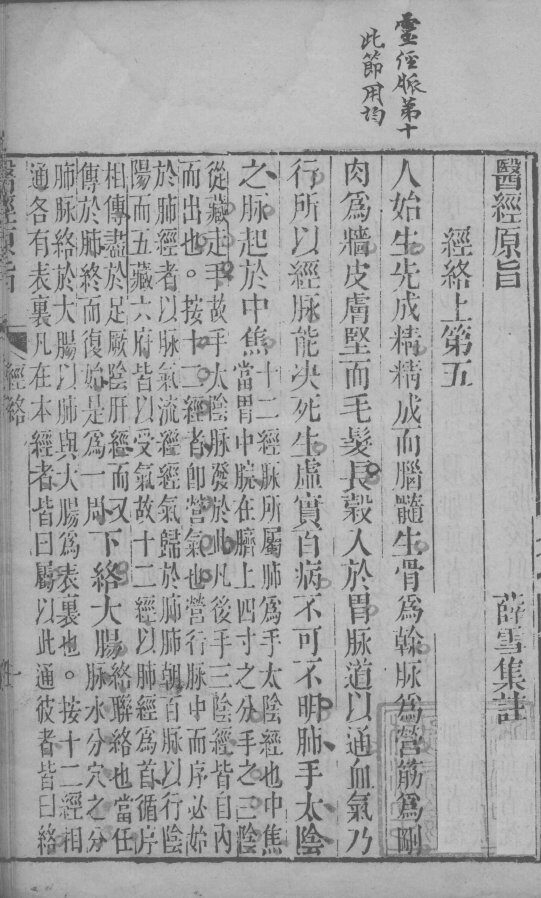 靈經脈第十
此節用均
醫經原旨
薛雪集註
經絡上第五
人始生先成精精成而腦髓生骨爲幹脈爲營筋爲剛
肉爲牆皮膚堅而毛髮長穀入於胃脈道以通血氣乃
行所以經脈能決死生虛實百病不可不明肺手太陰
之脈起於中焦十二經脈所屬肺爲手太陰經也中焦
當胃中脘在臍上四寸之分手之三陰
從藏走手故手太陰脈發於此凡後手三陰經皆自內
而出也。按十二經者卽營氣也營行脈中而序必始
於肺經者以脈氣流經經氣歸於肺肺朝百脈以行陰
陽而五藏六府皆以受氣故十二經以肺經爲首循序
相傳盡於足厥陰肝經而又
傳於肺終而復始是爲一周下絡大腸絡聯絡也當任
脈水分穴之分
肺脈絡於大腸以肺與大腸爲表裏也。按十二經相
通各有表裏凡在本經者皆曰屬以此通彼者皆曰絡
醫經原旨
經絡